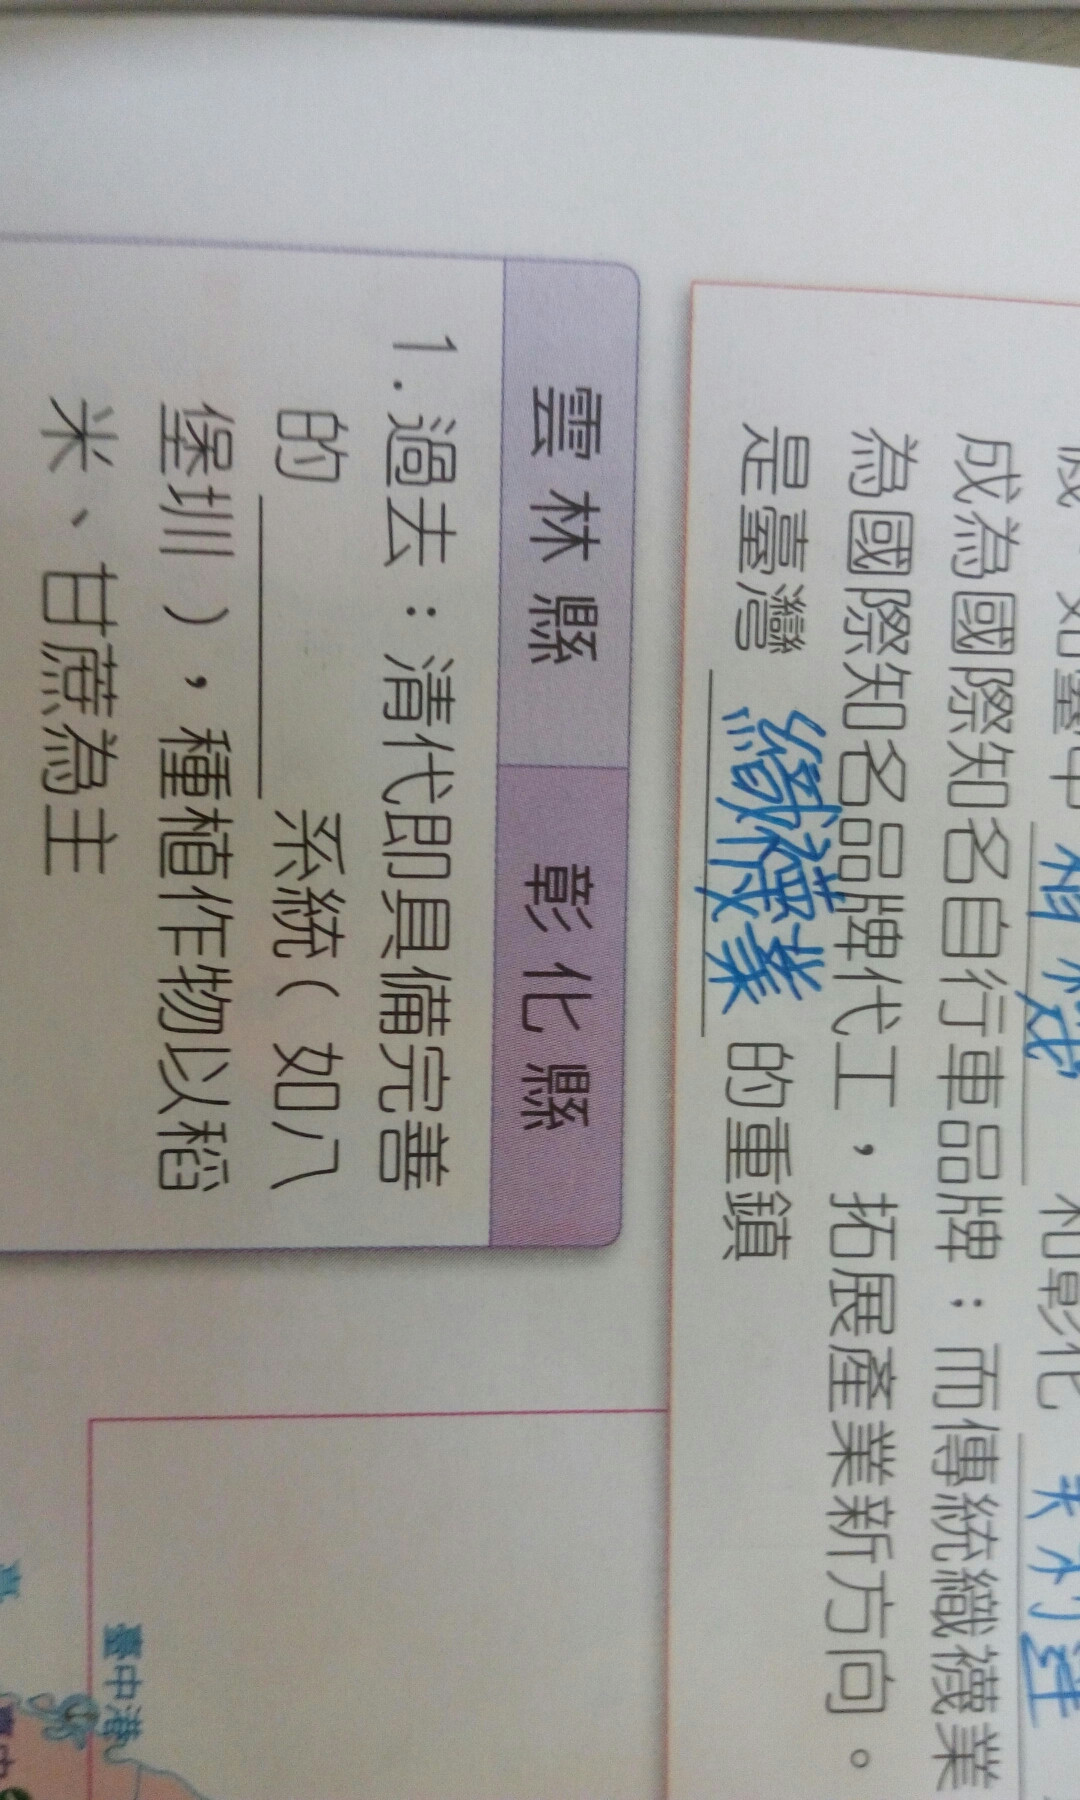 如臺中 和彰化
成為國際知名自行車品牌；而傳統織襪業
為國際知名品牌代工，拓展產業新方向。
是臺灣 織襪業 的重鎮
雲林縣 彰化縣
1.過去：清代即具備完善
的 系統（如八
堡圳），種植作物以稻
米、甘蔗為主
臺中港